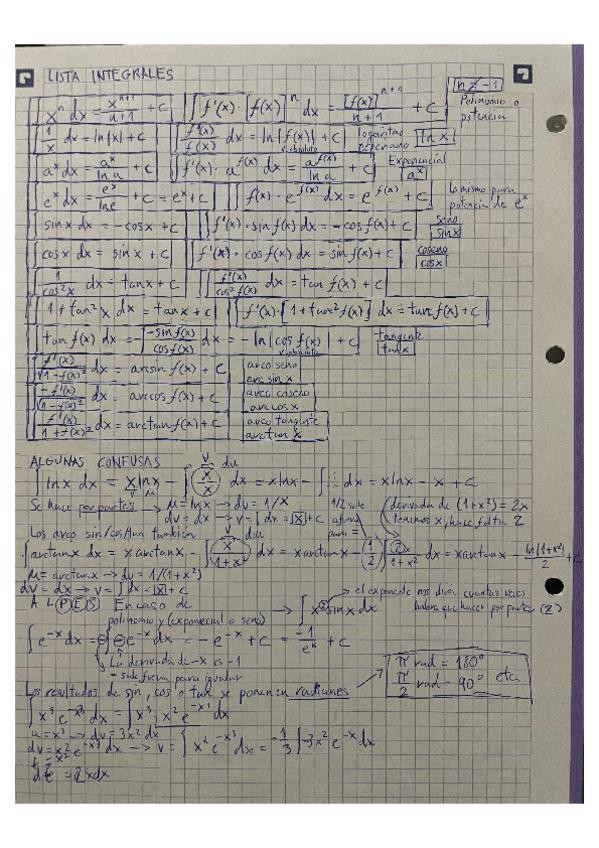 LISTA INTEGRALES
∫ xⁿ dx = xⁿ⁺¹/(n+1) + C   ∫ f'(x)·[f(x)]ⁿ dx = [f(x)]ⁿ⁺¹/(n+1) + C   n ≠ -1   Polinomio o potencia
∫ 1/x dx = ln|x| + C   ∫ f'(x)/f(x) dx = ln|f(x)| + C   v. absoluto   logaritmo neperiano   ln x
∫ aˣ dx = aˣ/ln a + C   ∫ f'(x)·a^f(x) dx = a^f(x)/ln a + C   Exponencial   aˣ
∫ eˣ dx = eˣ/ln e + C = eˣ + C   ∫ f(x)·e^f(x) dx = e^f(x) + C   Lo mismo para potencia de eˣ
∫ sin x dx = -cos x + C   ∫ f'(x)·sin f(x) dx = -cos f(x) + C   seno   sin x
∫ cos x dx = sin x + C   ∫ f'(x)·cos f(x) dx = sin f(x) + C   coseno   cos x
∫ 1/cos²x dx = tan x + C   ∫ f'(x)/cos² f(x) dx = tan f(x) + C
∫ 1 + tan²x dx = tan x + C   ∫ f'(x)·[1 + tan² f(x)] dx = tan f(x) + C
∫ tan f(x) dx = -∫ -sin f(x)/cos f(x) dx = -ln|cos f(x)| + C   v. absoluto   tangente   tan x
∫ f'(x)/√(1-f(x)²) dx = arcsin f(x) + C   arco seno   arc sin x
∫ -f'(x)/√(1-f(x)²) dx = arccos f(x) + C   arco coseno   arccos x
∫ f'(x)/(1+f(x)²) dx = arctan f(x) + C   arco tangente   arctan x
ALGUNAS CONFUSAS
∫ ln x dx = x ln x - ∫ x/x dx = x ln x - ∫ 1 dx = x ln x - x + C
Se hace por partes   u = ln x → du = 1/x
dv = dx → v = ∫ dx = x + C
1/2 sale afuera para =
derivada de (1+x²) = 2x
tenemos x, hace falta 2
Los arco sin/cos/tan también
∫ arctan x dx = x arctan x - ∫ x/(1+x²) dx = x arctan x - (1/2) ∫ 2x/(1+x²) dx = x arctan x - ln|1+x²|/2 + C
u = arctan x → du = 1/(1+x²)
dv = dx → v = ∫ dx = x + C
A L P E S   En caso de
polinomio y (exponencial o seno) → ∫ x² sin x dx
el exponente nos dirá cuantas veces
habrá que hacer por partes (2)
∫ e⁻ˣ dx = -∫ -e⁻ˣ dx = -e⁻ˣ + C = -1/eˣ + C
La derivada de -x es -1
- sale fuera para igualar
Los resultados de sin, cos o tan se ponen en radianes → π rad = 180°
π/2 rad = 90° etc.
∫ x⁵ e^-x³ dx = ∫ x³ · x² e^-x³ dx
u = x³ → du = 3x² dx
dv = x² e^-x³ dx → v = ∫ x² e^-x³ dx = -1/3 ∫ -3x² e^-x³ dx
t = x²
dt = 2x dx